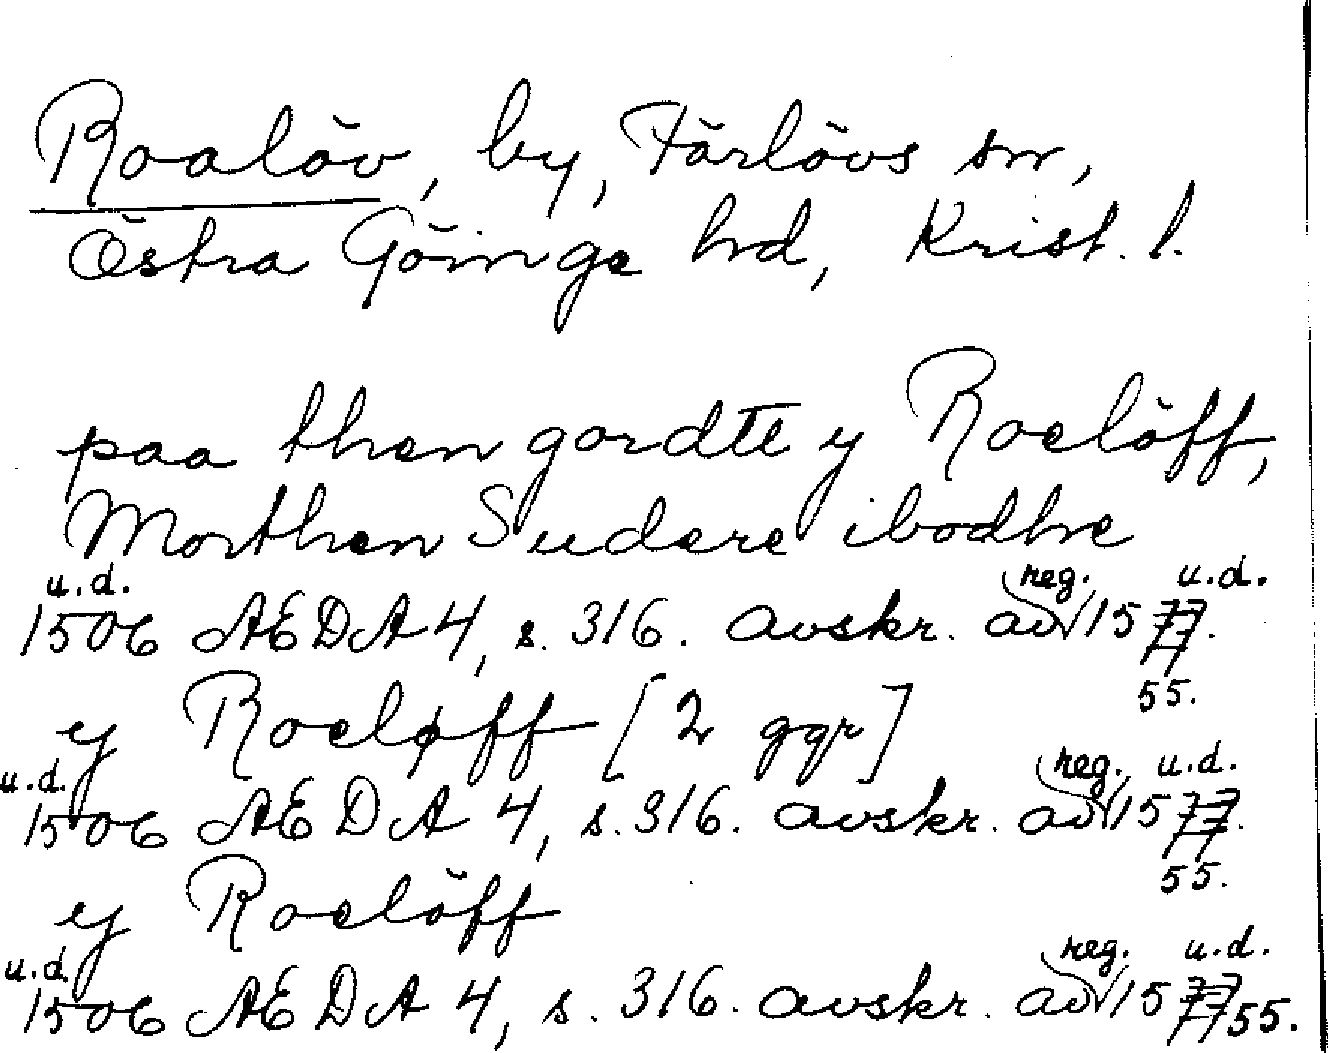 Roalöv, by, Färlövs sn,
Östra Göinge hd, Krist. l.
paa then gordte y Roelöff,
Morthen Sudere ibodhe
u.d. reg. u.d.
1506 AEDA 4, s. 316. avskr. av 1577.
55.
y Roeløff [2 ggr]
u.d. reg. u.d.
1506 AEDA 4, s. 316. avskr. av 1577.
55.
y Roelöff
u.d. reg. u.d.
1506 AEDA 4, s. 316. avskr. av 1577 55.